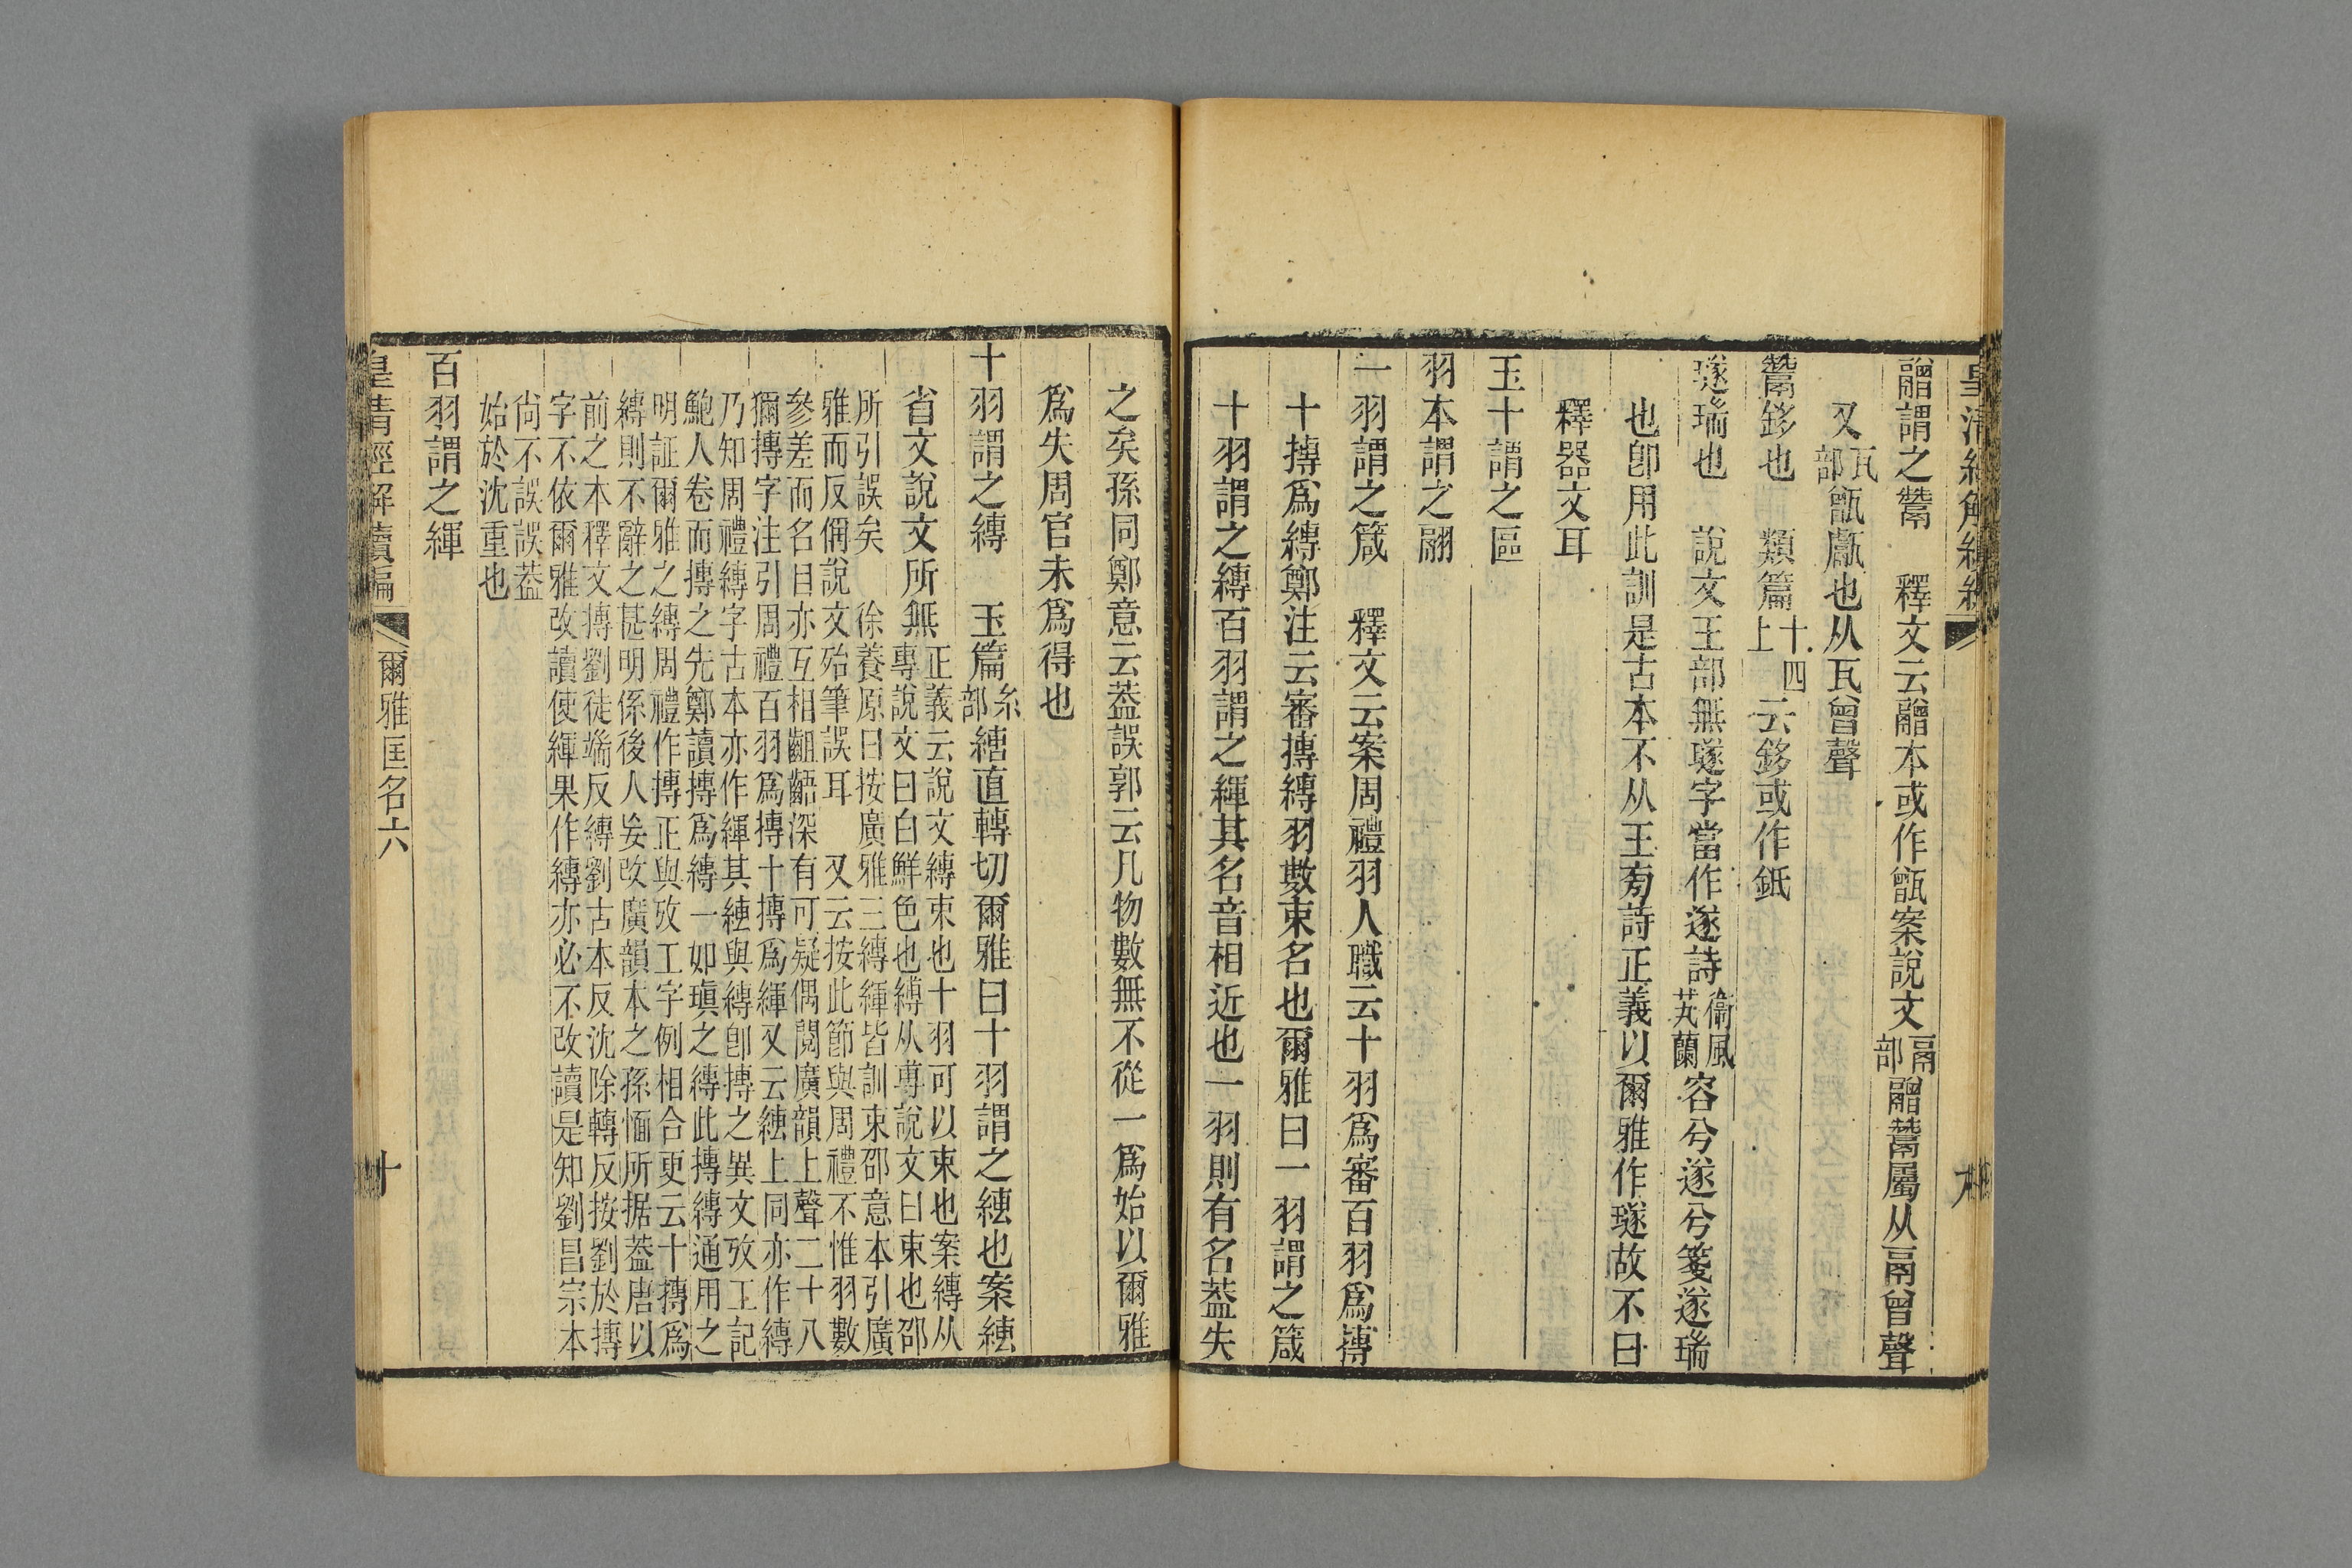 皇清經解續編
䰝謂之鬵　釋文云䰝本或作甑案說文鬲部䰝鬵屬从鬲曾聲
又瓦部甑甗也从瓦曾聲
鬵鉹也　類篇十四上云鉹或作䤥
璲瑞也　說文王部無璲字當作遂詩衞風芄蘭容兮遂兮箋遂瑞
也卽用此訓是古本不从王㫄詩正義以爾雅作璲故不曰
釋器文耳
玉十謂之區
羽本謂之翮
一羽謂之箴　釋文云案周禮羽人職云十羽爲審百羽爲摶
十摶爲縛鄭注云審摶縛羽數束名也爾雅曰一羽謂之箴
十羽謂之縛百羽謂之緷其名音相近也一羽則有名葢失
之矣孫同鄭意云葢誤郭云凡物數無不從一爲始以爾雅
爲失周官未爲得也
十羽謂之縛　玉篇糸部䌖直轉切爾雅曰十羽謂之䌖也案䌖
省文說文所無
正義云說文縛束也十羽可以束也案縛从
專說文曰白鮮色也縛从尃說文曰束也邵
所引誤矣　徐養原曰按廣雅三縛緷皆訓束邵意本引廣
雅而反偁說文殆筆誤耳　又云按此節與周禮不惟羽數
參差而名目亦互相齟齬深有可疑偶閱廣韻上聲二十八
獮摶字注引周禮百羽爲摶十摶爲緷又云䌖上同亦作縛
乃知周禮縛字古本亦作緷其䌖與縛卽摶之異文攷工記
鮑人卷而摶之先鄭讀摶爲縛一如瑱之縛此摶縛通用之
明証爾雅之縛周禮作摶正與攷工字例相合更云十摶爲
縛則不辭之甚明係後人妄改廣韻本之孫愐所据葢唐以
前之本釋文摶劉徒端反縛劉古本反沈除轉反按劉於摶
字不依爾雅改讀使緷果作縛亦必不改讀是知劉昌宗本
尙不誤誤葢
始於沈重也
百羽謂之緷
皇清經解續編　爾雅匡名六　十